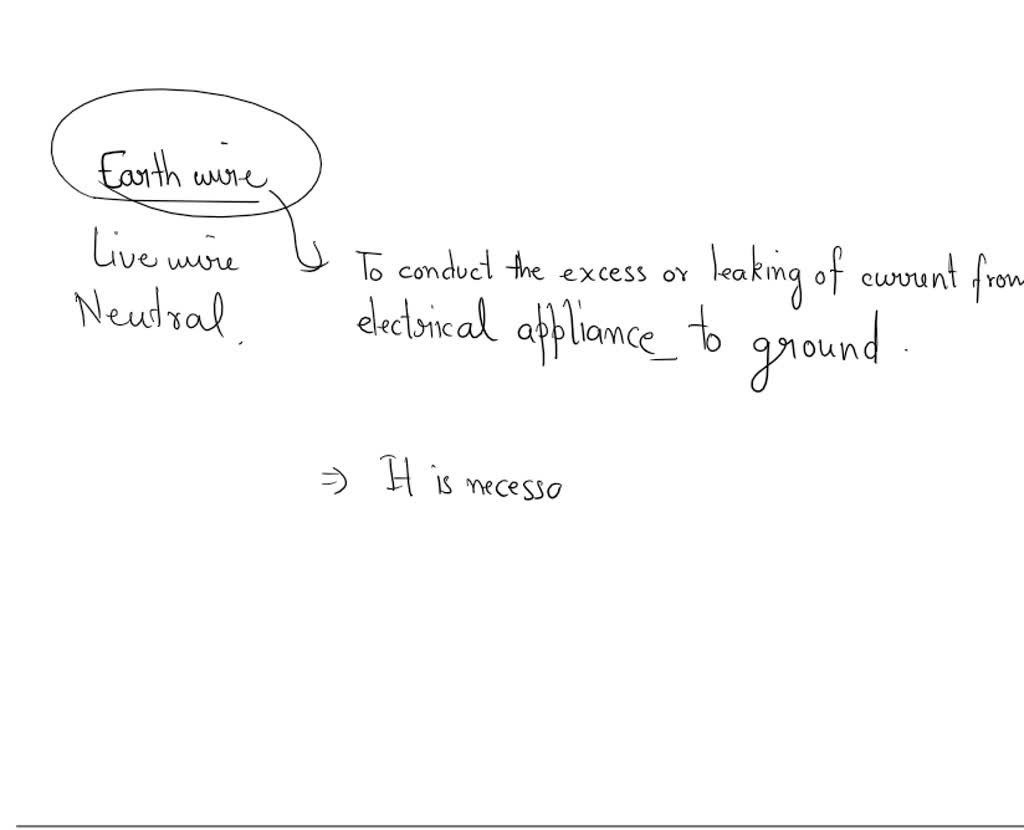 Earth wire
Live wire
Neutral.
To conduct the excess or leaking of current from
electrical appliance to ground.
⇒ It is necessa